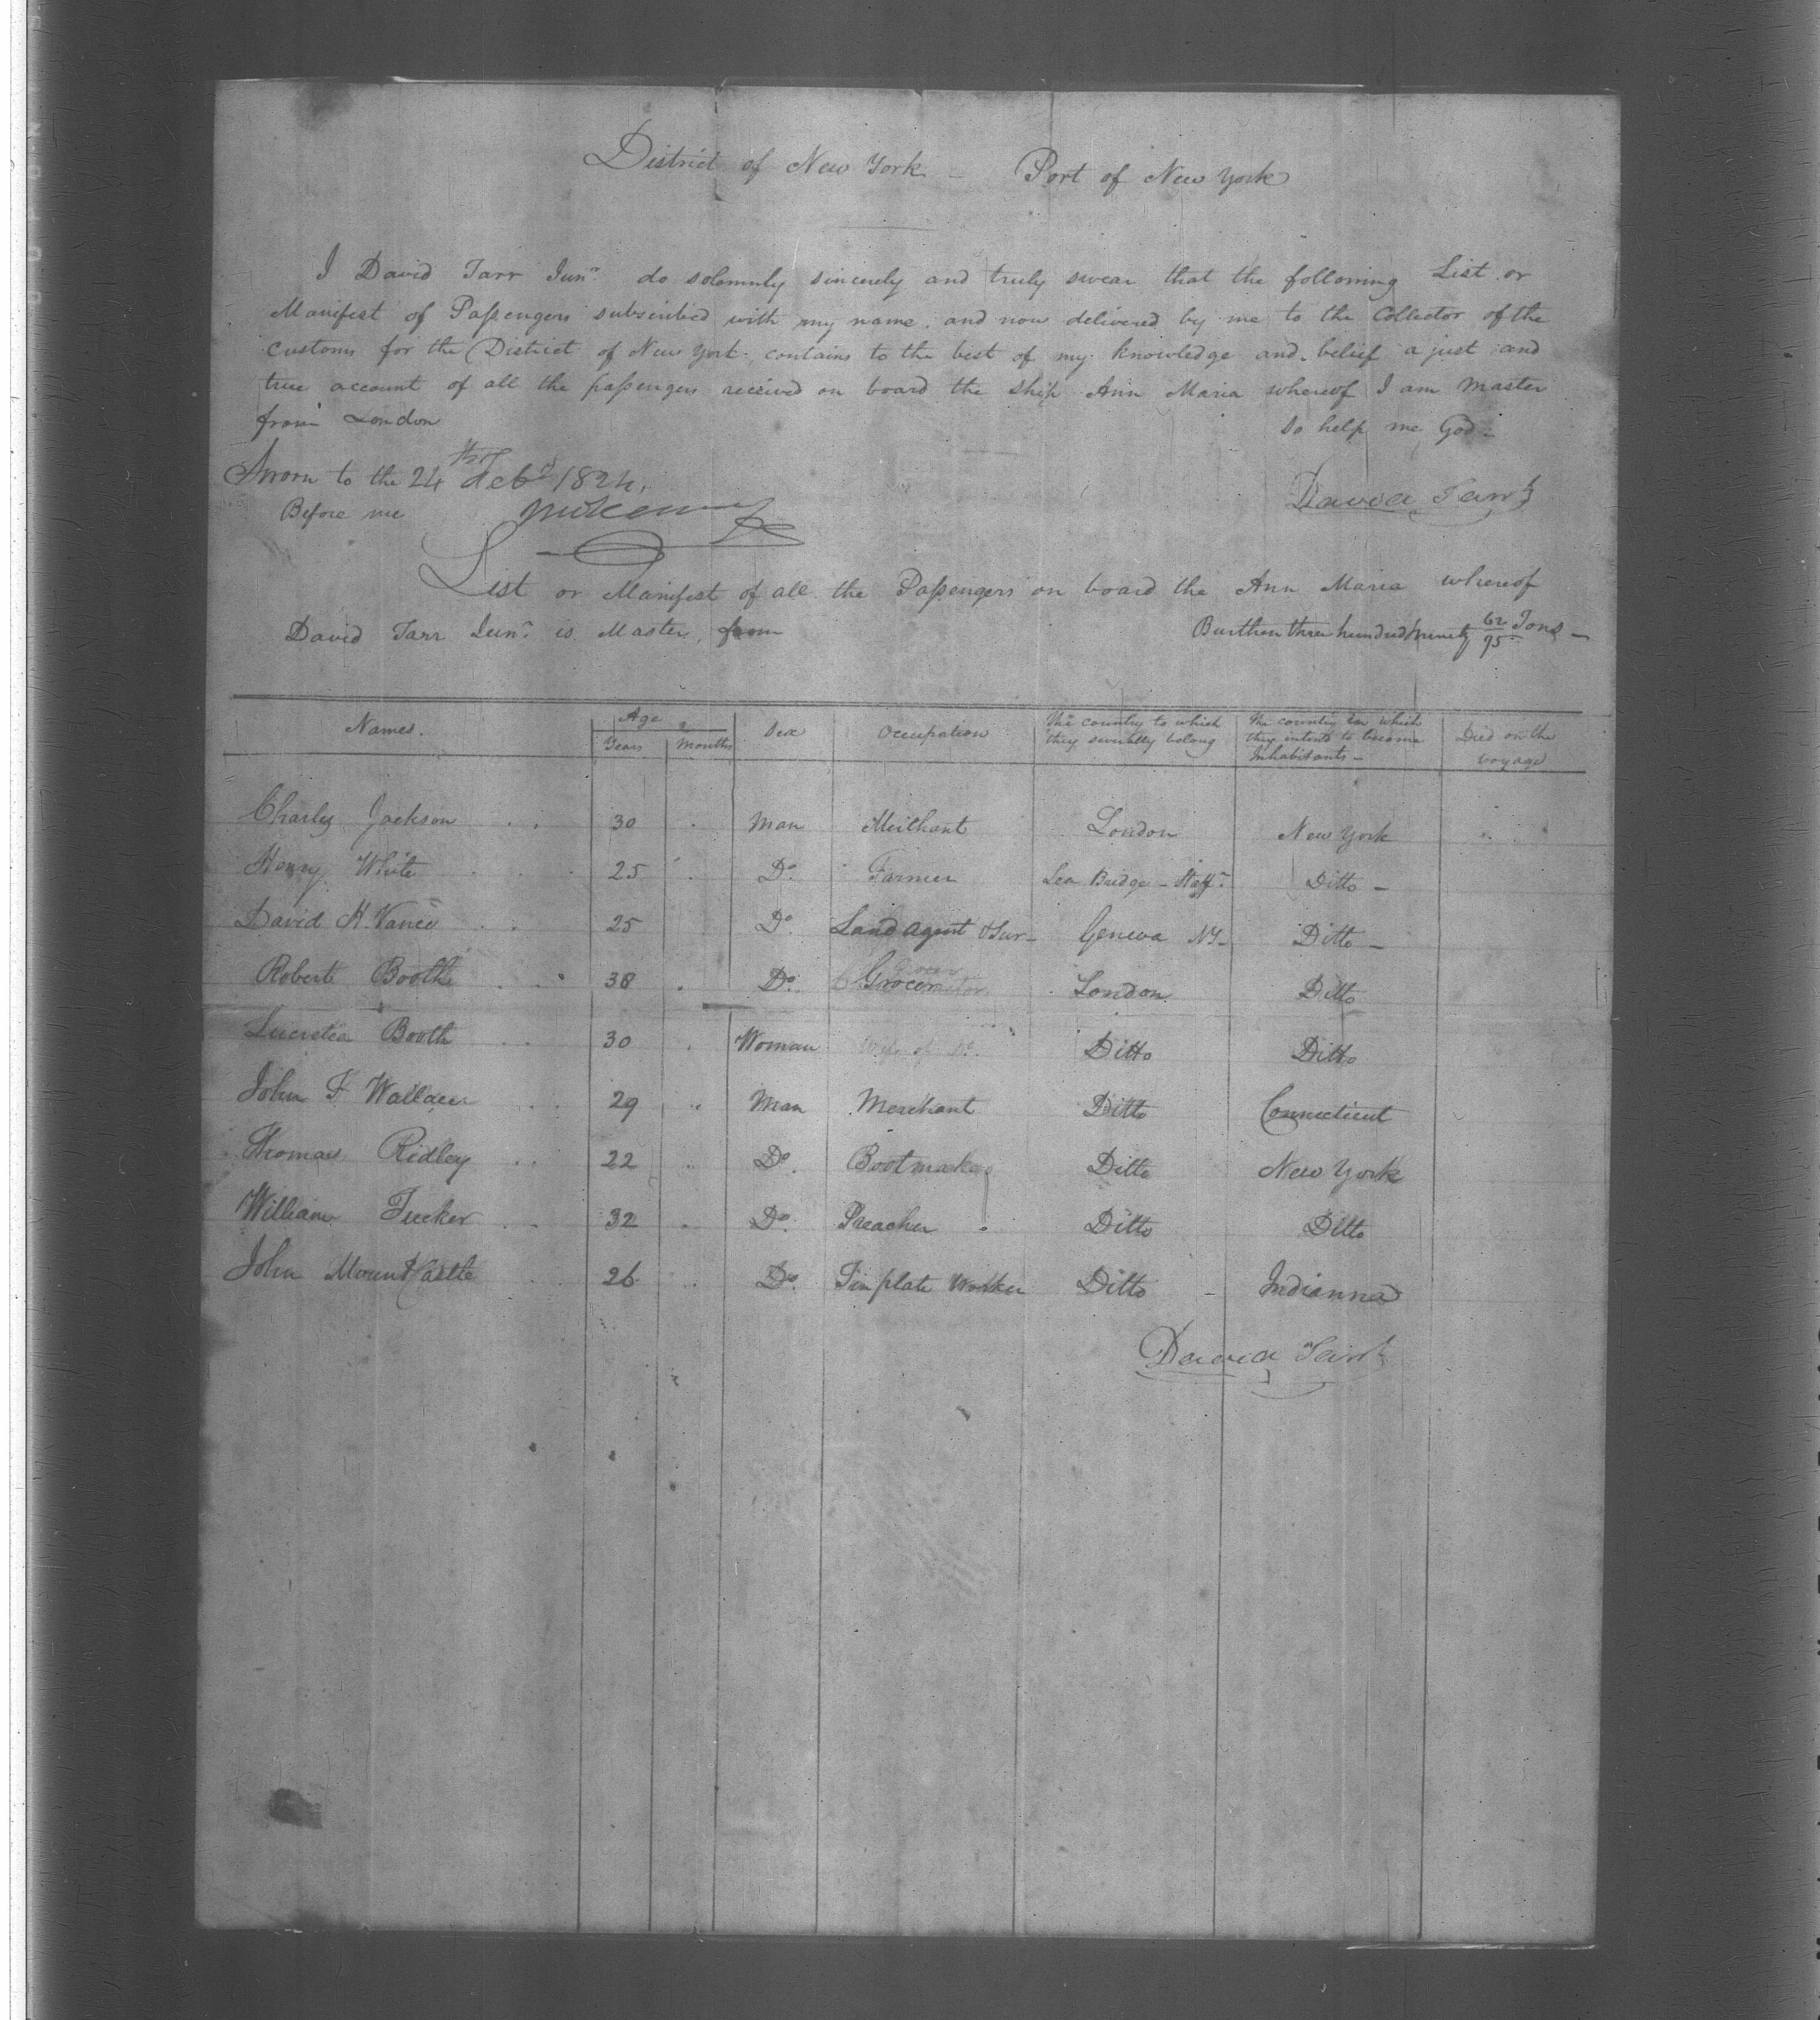 District of New York – Port of New York
I David Tarr Junr do solemnly sincerely and truly swear that the following List or
Manifest of Passengers subscribed with my name, and now delivered by me to the Collector of the
Customs for the District of New York, contains to the best of my knowledge and belief a just and
true account of all the passengers received on board the ship Ann Maria whereof I am Master
from London So help me God –
Sworn to the 24th of Feby 1824,
Before me David Tarr Jr
List or Manifest of all the Passengers on board the Ann Maria whereof
David Tarr Junr is Master, from Burthen three hundred ninety 62/95 Tons –
Names. Age Sex Occupation The country to which they severally belong The country in which they intend to become Inhabitants – Died on the voyage
Years Months
Charles Jackson 30 Man Merchant London New York
Henry White 25 Do. Farmer Lea Bridge – Staffr Ditto –
David H. Vance 25 Do. Land agent & Sur– Geneva NY– Ditto –
Robert Booth 38 Do. Grocer London Ditto
Lucretia Booth 30 Woman Wife of Do. Ditto Ditto
John F Wallace 29 Man Merchant Ditto Connecticut
Thomas Ridley 22 Do. Bootmaker Ditto New York
William Tucker 32 Do. Preacher Ditto Ditto
John MountCastle 26 Do. Tinplate Worker Ditto – Indianna
David Tarr Jr